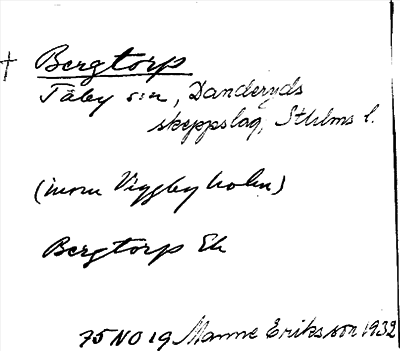 † Bergtorp
Täby sn, Danderyds
skeppslag, Sthlms l.
(inom Viggbyholm)
Bergtorp Ek
75 NO 19 Manne Eriksson 1932